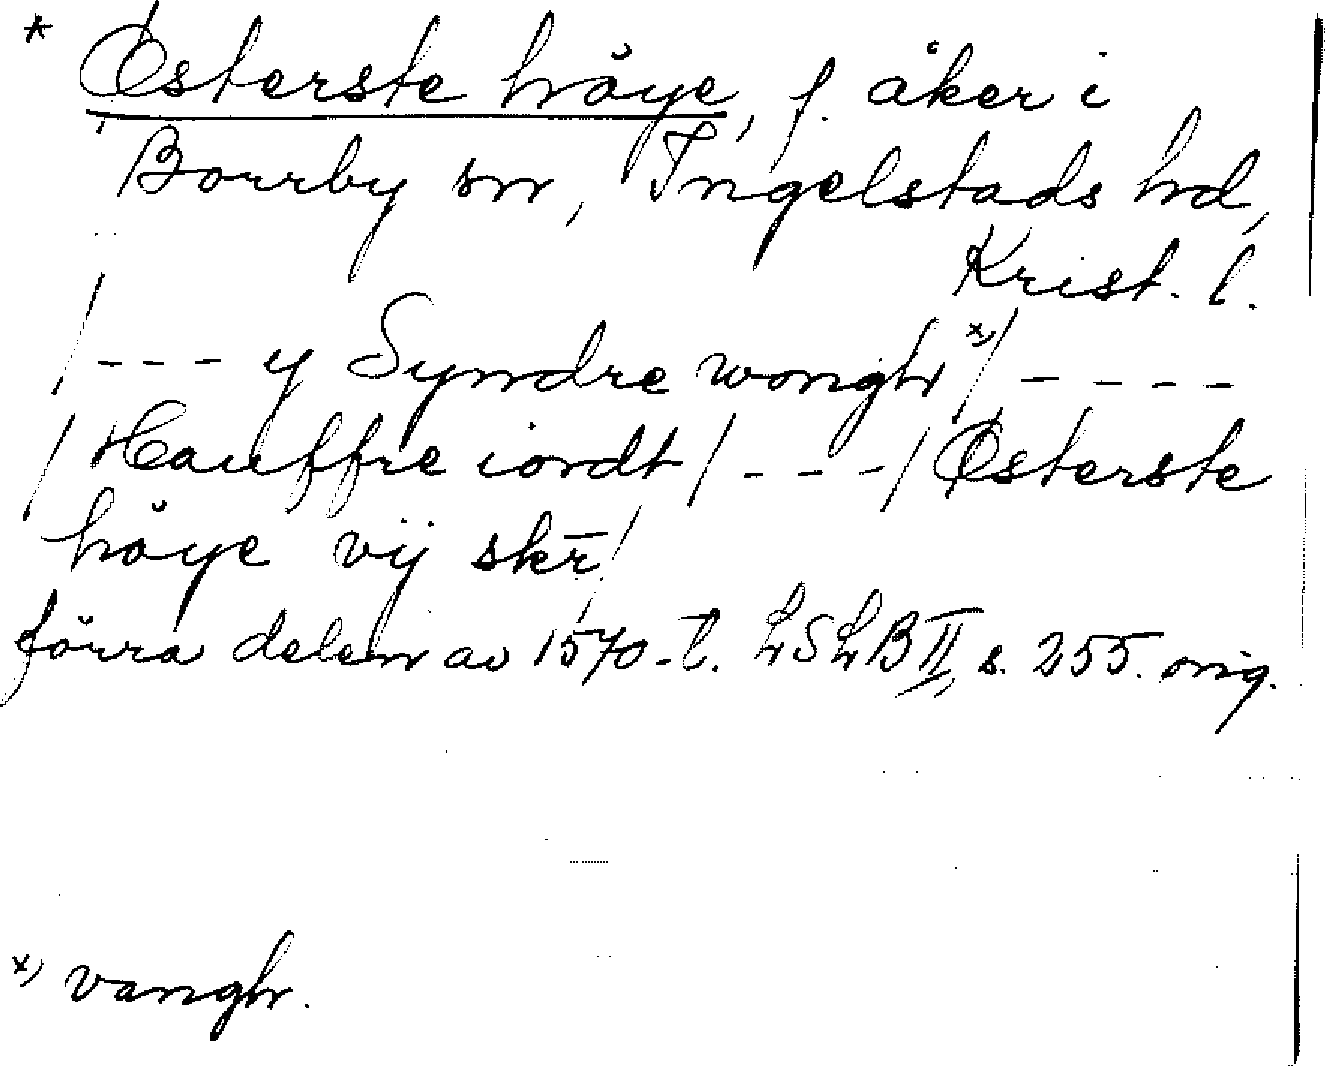 * Østerste høye, f. åker i
Borrby sn, Ingelstads hd,
Krist. l.
/--- y Syndre wongh x)/ ----
/Hauffre iordt/ ---/Østerste
høye vij skr̄/
förra delen av 1570-t. LSLB II, s. 255. orig.
x) vangh.